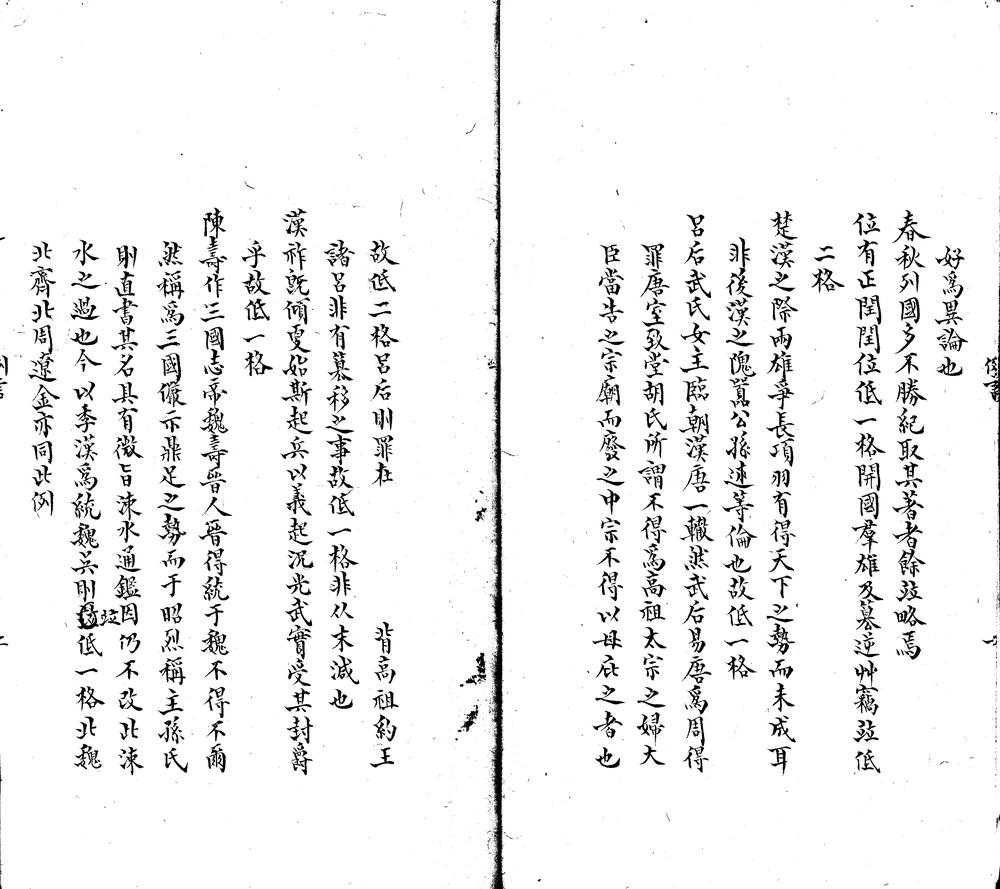 好爲異論也
春秋列國多不勝紀取其著者餘竝略焉
位有正閏閏位低一格開國羣雄及簒逆艸竊竝低
二格
楚漢之際兩雄爭長項羽有得天下之勢而未成耳
非後漢之隗囂公孫述等倫也故低一格
呂后武氏女主臨朝漢唐一轍然武后易唐爲周得
罪唐室致堂胡氏所謂不得爲高祖太宗之婦大
臣當告之宗廟而廢之中宗不得以母庇之者也
故低二格呂后則罪在　　　背高祖約王
諸呂非有篡移之事故低一格非从末減也
漢祚旣傾更始斯起兵以義起況光武實受其封爵
乎故低一格
陳壽作三國志帝魏壽晉人晉得統于魏不得不爾
然稱爲三國儼示鼎足之勢而于昭烈稱主孫氏
則直書其名具有微旨涑水通鑑因仍不改此涑
水之過也今以季漢爲統魏吳則竝低一格北魏
北齊北周遼金亦同此例